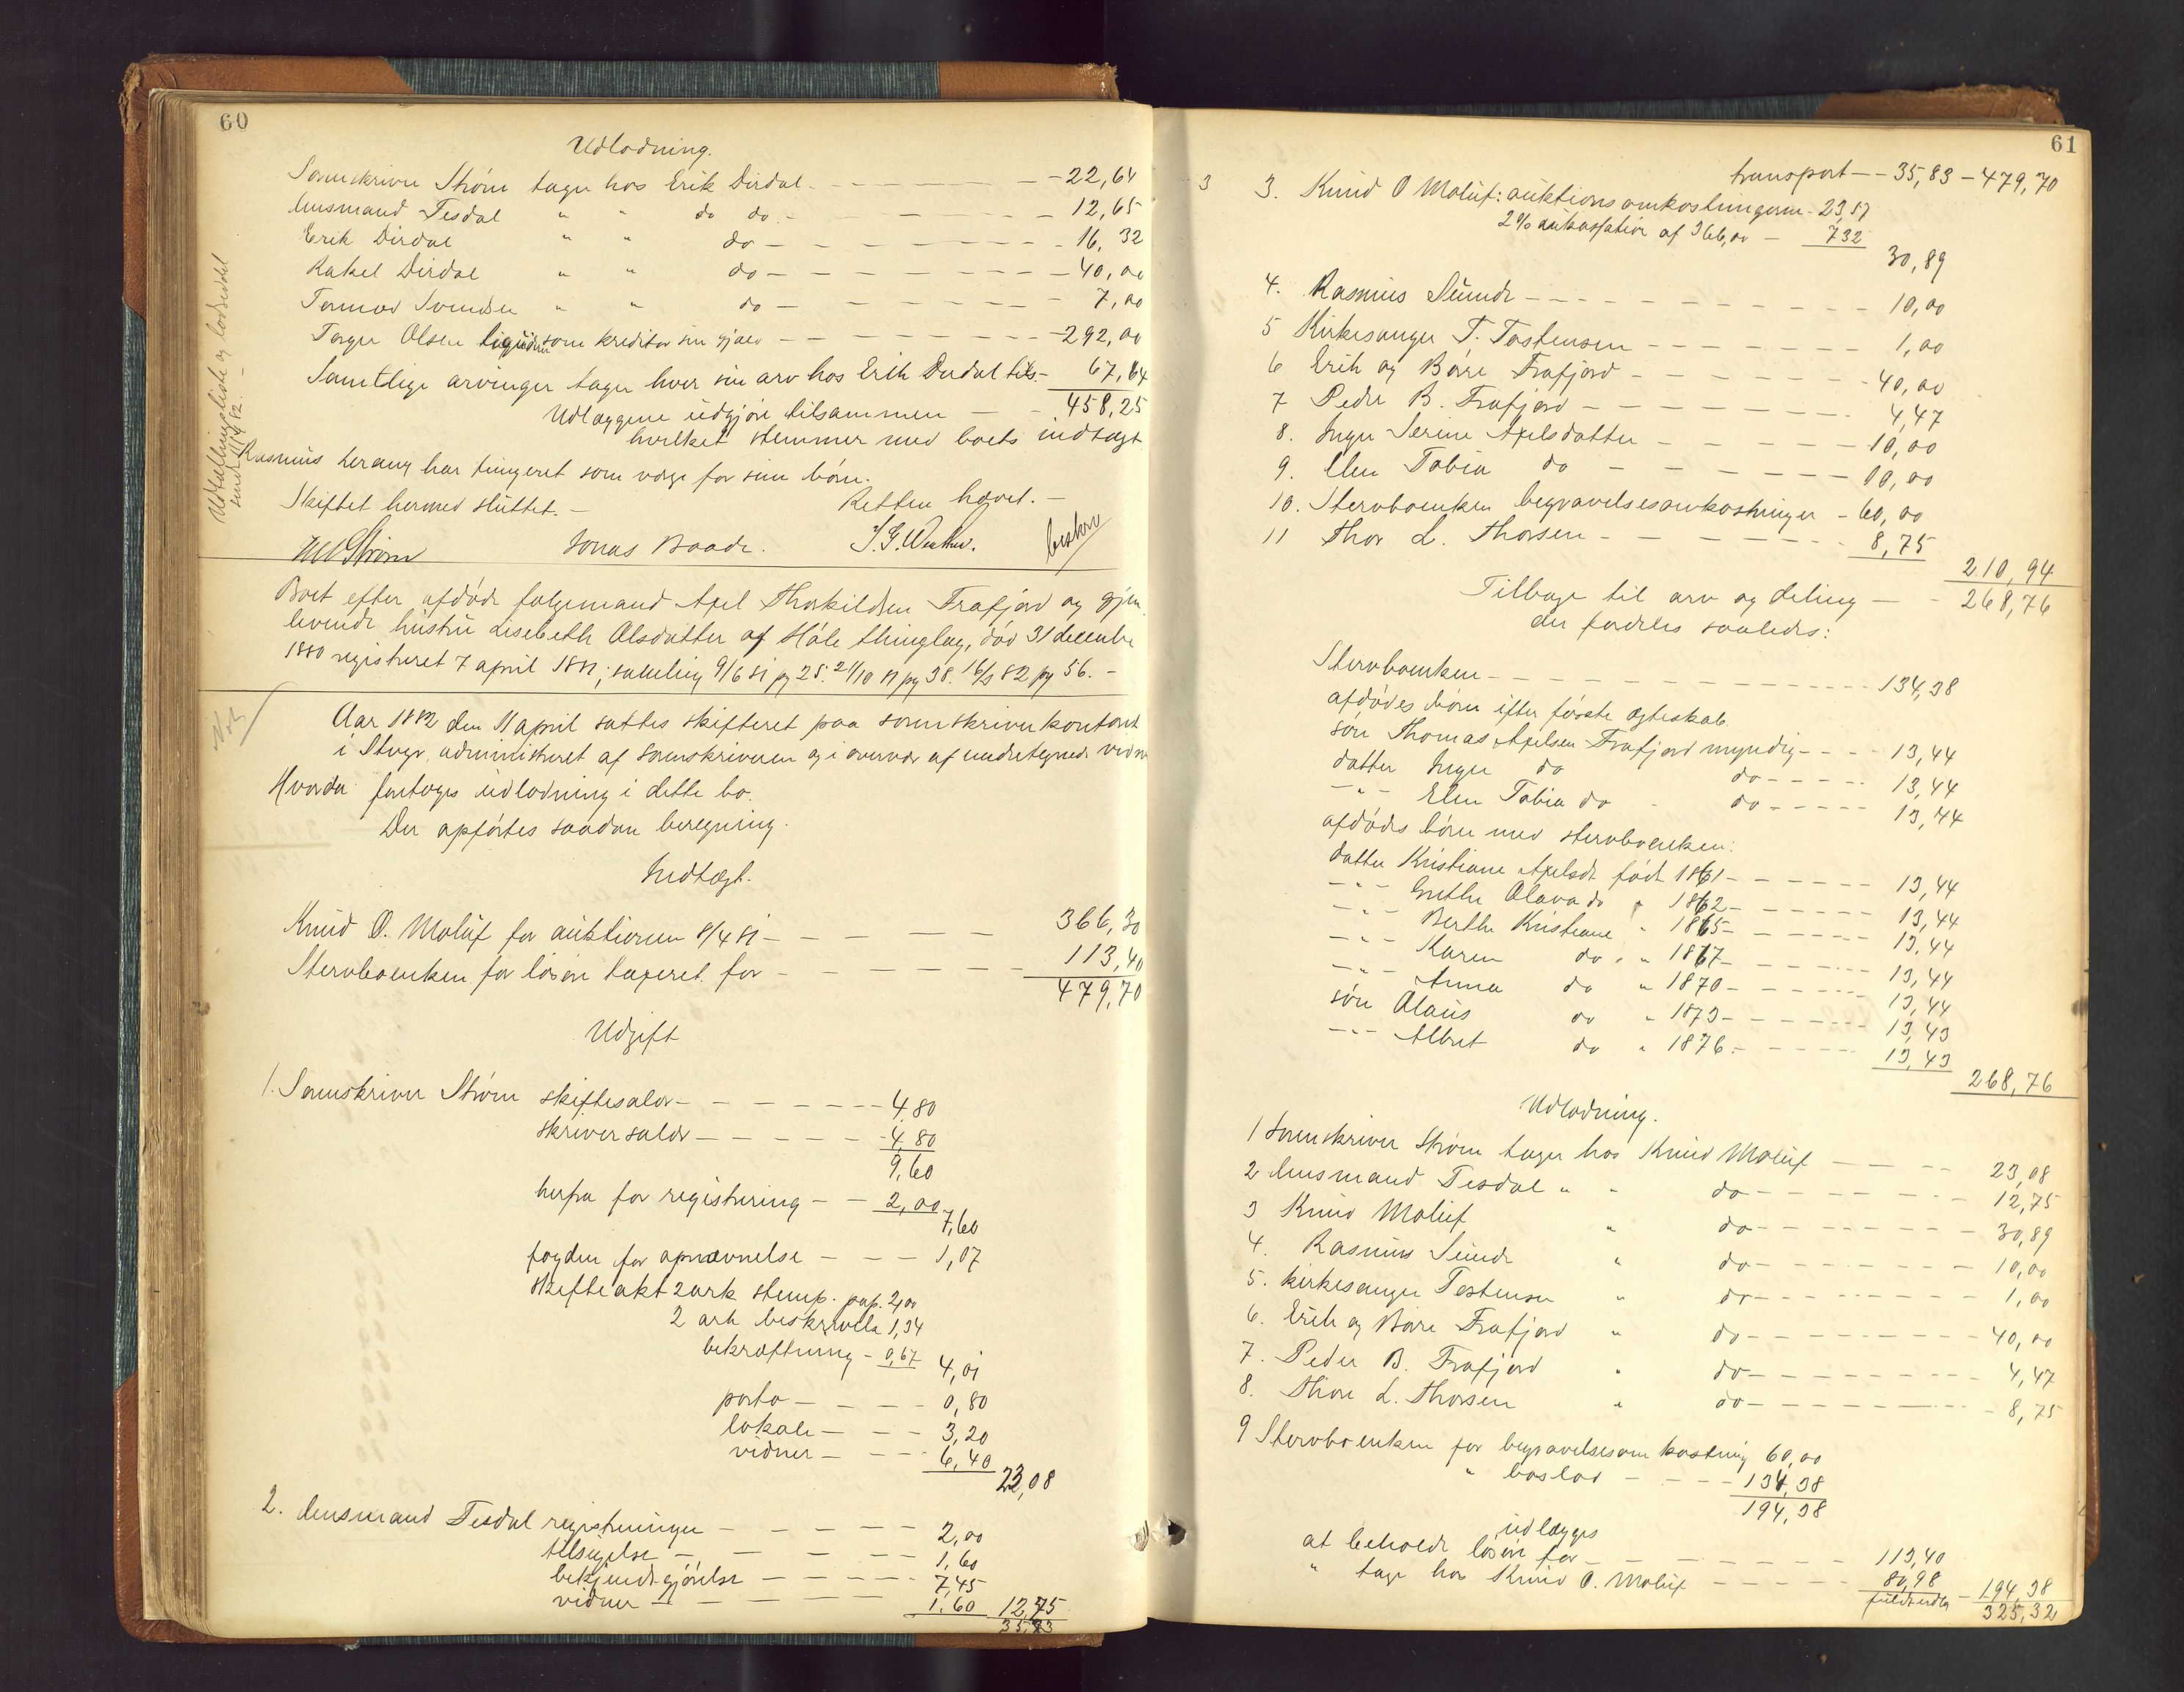 60
Udlodning.
Sorenskriver Strøm tager hos Erik Dirdal - 22,64
Lensmand Tesdal " " do do - 12,65
Erik Dirdal " " do - 16,32
Rakel Dirdal " " do - 40,00
Tormod Svendsen " " do - 7,00
Torger Olsen som kreditor sin gjæld - 292,00
Samtlige arvinger tager hver sin arv hos Erik Dirdal tils. - 67,64
Udlæggene udgjøre tilsammen - 458,25
hvilket stemmer med boets indtægt
Rasmus har fungeret som værge for sine børn.
Skiftet hermed sluttet. - Retten hævet. -
Strøm Jonas Baade.
Udtællingsliste og lodseddel
Boet efter afdøde følgemand Axel Thorkildsen Frafjord og gjen-
levende hustru Lisebeth Olsdatter af Høle thinglag, død 31 december
1880 registreret 7 april 1881; samling 9/6 81 pg 25. 21/10 81 pg 38. 16/3 82 pg 56. -
Aar 1882 den 11 april sattes skifteret paa sorenskriverkontoret
i Stugv. administreret af sorenskriveren og i overvær af undertegnede vidner
Hvorda foretoges udlodning i dette bo.
Der opførtes saadan beregning.
Indtægt.
Knud O. Moluf for auktionen 8/4 81 - 366,30
Stervboenken for løsøre taxeret for - 113,40
479,70
Udgift
1. Sorenskriver Strøm skiftesalær - 4,80
skriversalær - 4,80
9,60
herfra for registrering - 2,00
7,60
fogden for opnævnelse - 1,07
Skifteakt 2 ark stemp. pap. 2,00
2 ark beskrivelse 1,34
bekræftning - 0,67 4,01
porto - 0,80
lokale - 3,20
vidner - 6,40
23,08
2. Lensmand Tesdal registreringen - 2,00
tilsigelse - 1,60
bekjendtgjørelse - 7,45
vidner - 1,60 12,75
35,83
61
transport - 35,83 - 479,70
3 3. Knud O Moluf: auktionsomkostningerne - 23,57
2% inkassation af 366,00 - 7,32
30,89
4. Rasmus Seime - 10,00
5 Kirkesanger T. Tostensen - 1,00
6 Erik og Børe Frafjord - 40,00
7 Peder B. Frafjord - 4,47
8. Inger Serine Axelsdatter - 10,00
9. Elen Tobia do - 10,00
10. Stervboenken begravelsesomkostninger - 60,00
11 Thor L. Thorsen - 8,75
210,94
Tilbage til arv og deling - 268,76
der fordeles saaledes:
Stervboenken - 134,38
afdødes børn efter første ægteskab
søn Thomas Axelsen Frafjord myndig - 13,44
datter Inger do do - 13,44
- " - Elen Tobia do do - 13,44
afdødes børn med stervboenken:
datter Kristiane Axelsdt. født 1861 - 13,44
- " - Grethe Olava do " 1862 - 13,44
- " - Berthe Kristiane " 1865 - 13,44
- " - Karen do " 1867 - 13,44
- " - Anna do " 1870 - 13,44
søn Olaus do " 1873 - 13,43
- " - Albert do " 1876 - 13,43
268,76
Udlodning.
1 Sorenskriver Strøm tager hos Knud Moluf - 23,08
2 Lensmand Tesdal " " do - 12,75
3 Knud Moluf " do - 30,89
4. Rasmus Seime " do - 10,00
5. Kirkesanger Tostensen " do - 1,00
6. Erik og Børe Frafjord " do - 40,00
7. Peder B. Frafjord " do - 4,47
8. Thore L. Thorsen " do - 8,75
9 Stervboenken for begravelsesomkostning 60,00
" boslod - 134,38
194,38
udlægges
at beholde løsøre for - 113,40
" tage hos Knud O. Moluf - 80,98 - 194,38
325,32